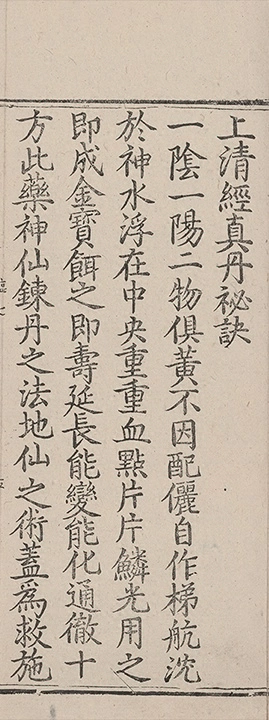 上清經真丹祕訣
一陰一陽二物俱黃不因配儷自作梯航沈
於神水浮在中央重重血點片片鱗光用之
即成金寶餌之即壽延長能變能化通徹十
方此藥神仙鍊丹之法地仙之術蓋爲救施